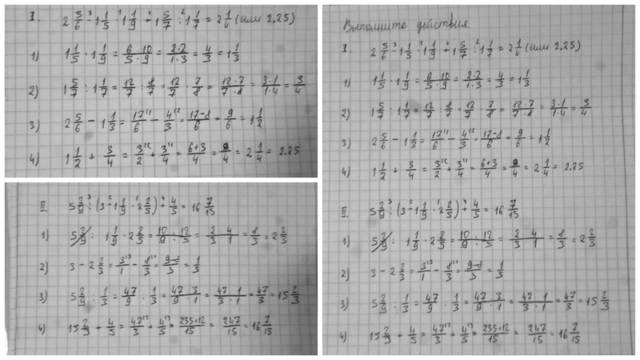 I. 2 5/6 - 1 1/5 · 1 1/9 + 1 5/7 : 1 1/7 = 2 1/4 (или 2,25)
1) 1 1/5 · 1 1/9 = 6·10/5·9 = 2·2/1·3 = 4/3 = 1 1/3
2) 1 5/7 : 1 1/7 = 12/7 : 8/7 = 12/7 · 7/8 = 12·7/7·8 = 3·1/1·4 = 3/4
3) 2 5/6 - 1 1/3 = 17/6 - 4/3 = 17-8/6 = 9/6 = 1 1/2
4) 1 1/2 + 3/4 = 3/2 + 3/4 = 6+3/4 = 9/4 = 2 1/4 = 2.25
II 5 2/9 : (3 - 1 1/9 · 2 2/5) + 4/5 = 16 7/15
2) 3 - 2 2/3 = 3/1 - 8/3 = 9-8/3 = 1/3
3) 5 2/9 : 1/3 = 47/9 : 1/3 = 47·3/9·1 = 47·1/3·1 = 47/3 = 15 2/3
4) 15 2/3 + 4/5 = 47/3 + 4/5 = 235+12/15 = 247/15 = 16 7/15
Выполните действия.
I. 2 5/6 - 1 1/5 · 1 1/9 + 1 5/7 : 1 1/7 = 2 1/4 (или 2,25)
1) 1 1/5 · 1 1/9 = 6·10/5·9 = 2·2/1·3 = 4/3 = 1 1/3
2) 1 5/7 : 1 1/7 = 12/7 : 8/7 = 12/7 · 7/8 = 12·7/7·8 = 3·1/1·4 = 3/4
3) 2 5/6 - 1 1/3 = 17/6 - 4/3 = 17-8/6 = 9/6 = 1 1/2
4) 1 1/2 + 3/4 = 3/2 + 3/4 = 6+3/4 = 9/4 = 2 1/4 = 2.25
II. 5 2/9 : (3 - 1 1/9 · 2 2/5) + 4/5 = 16 7/15
2) 3 - 2 2/3 = 3/1 - 8/3 = 9-8/3 = 1/3
3) 5 2/9 : 1/3 = 47/9 : 1/3 = 47·3/9·1 = 47·1/3·1 = 47/3 = 15 2/3
4) 15 2/3 + 4/5 = 47/3 + 4/5 = 235+12/15 = 247/15 = 16 7/15